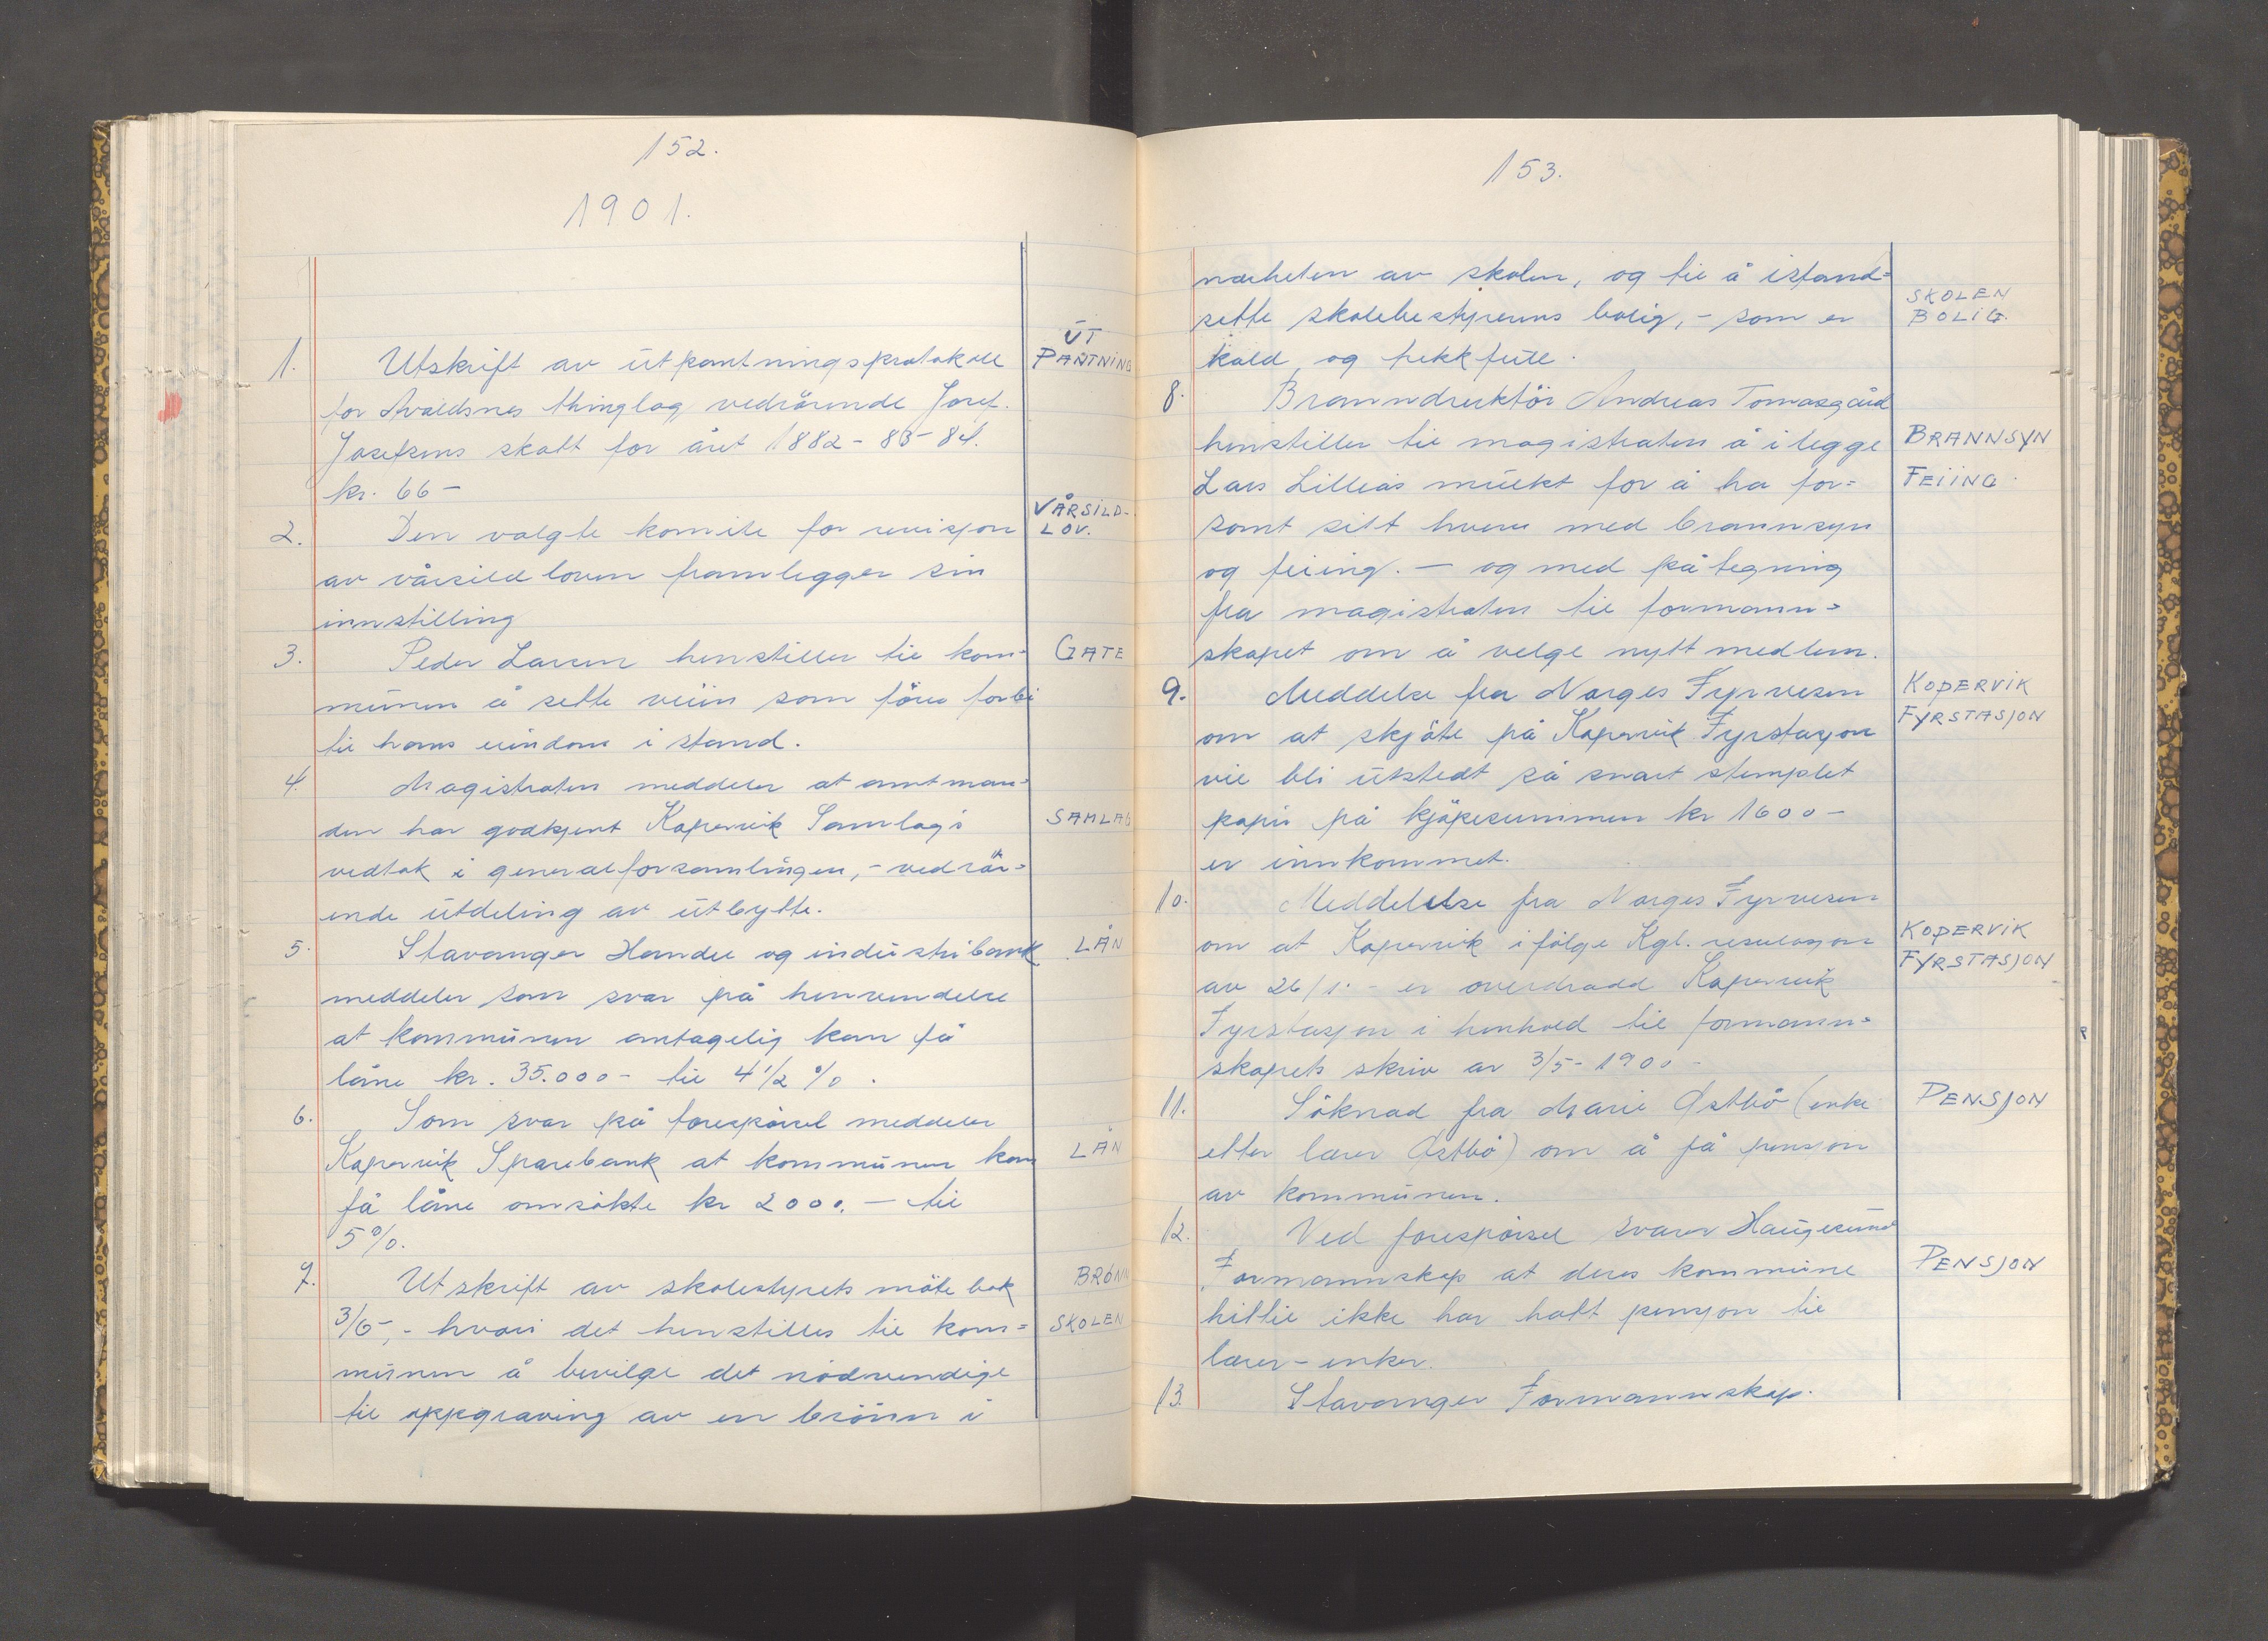 152.
1901.
1. Utskrift av utpantningsprotokoll UT PANTNING
for Avaldsnes thinglag vedrörende Josef.
Josefsens skatt for året 1882-83-84.
kr. 66-
2. Den valgte komite for revisjon VÅRSILD-LOV.
av vårsildloven framlegger sin
innstilling
3. Peder Larsen henstiller til kom- GATE
munen å sette veien som förer forbi
til hans eiendom i stand.
4. Magistraten meddeler at amtman-
den har godkjent Kopervik Samlags SAMLAG
vedtak i generalforsamlingen,- vedrör=
ende utdeling av utbytte.
5. Stavanger Handel og industribank LÅN
meddeler som svar på henvendelse
at kommunen antagelig kan få
låne kr. 35.000- til 4 1/2 %.
6. Som svar på forespörsel meddeler
Kopervik Sparebank at kommunen kan LÅN
få låne omsökte kr 2000.- til
5%.
7. Utskrift av skolestyrets möte bok BRÖNN
3/6-,- hvori det henstilles til kom= SKOLEN
munen å bevilge det nödvendige
til oppgraving av en brönn i
153.
nærheten av skolen, og til å istand=
sette skolebestyrerens bolig,- som er SKOLEN BOLIG.
kald og trekkfull.
8. Branndirektör Andreas Tomasgård
henstiller til magistraten å ilegge BRANNSYN
Lars Lilleås mulkt for å ha for= FEIING.
sömt sitt hverv med brannsyn
og feiing. - og med påtegning
fra magistraten til formann=
skapet om å velge nytt medlem.
9. Meddelse fra Norges Fyrvesen KOPERVIK
om at skjöte på Kopervik Fyrstasjon FYRSTASJON
vil bli utstedt så snart stemplet
papir på kjöpesummen kr 1600-
er innkommet.
10. Meddelelse fra Norges Fyrvesen
om at Kopervik ifölge Kgl. resulosjon KOPERVIK
av 26/1.- er overdradd Kopervik FYRSTASJON
Fyrstasjon i henhold til formann=
skapets skriv av 3/5-1900-
11. Söknad fra Marie Østbö (enke PENSJON
etter lærer Østbö) om å få pensjon
av kommunen.
12. Ved forespörsel svarer Haugesund
Formannskap at deres kommune PENSJON
hittil ikke har hatt pensjon til
lærer-enker.
13. Stavanger Formannskap.